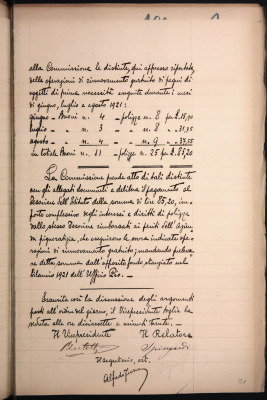 alla Commissione le distinte, qui appresso riportate,
delle operazioni di rinnovamento gratuito di pegni di
oggetti di prima necessità eseguite durante i mesi
di giugno, luglio e agosto 1921:
giugno – Buoni n. 4 – polizze n. 8 per £
luglio – " n. 3 – " n. 8 – "
agosto – " n. 4 – " n. 9 –
in totale Buoni n. 11 – polizze n. 25 per £. 85,20
La Commissione prende atto di tali distinte
con gli allegati documenti e delibera il pagamento al
Tesoriere dell'Istituto della somma di lire 85,20, im=
porto complessivo degli interessi e diritti di polizza
dallo stesso Tesoriere rimborsati ai
che eseguirono le sovra indicate ope=
razioni di rinnovamento gratuito, mandando preleva=
re detta somma dall'apposito fondo stanziato nel
bilancio 1921 dell'Ufficio Pio. –
Esaurita così la discussione degli argomenti
posti all'ordine del giorno, il Vicepresidente toglie la
seduta alle ore diciassette e minuti trenta. –
Il Vicepresidente Il Relatore
Il segretario,